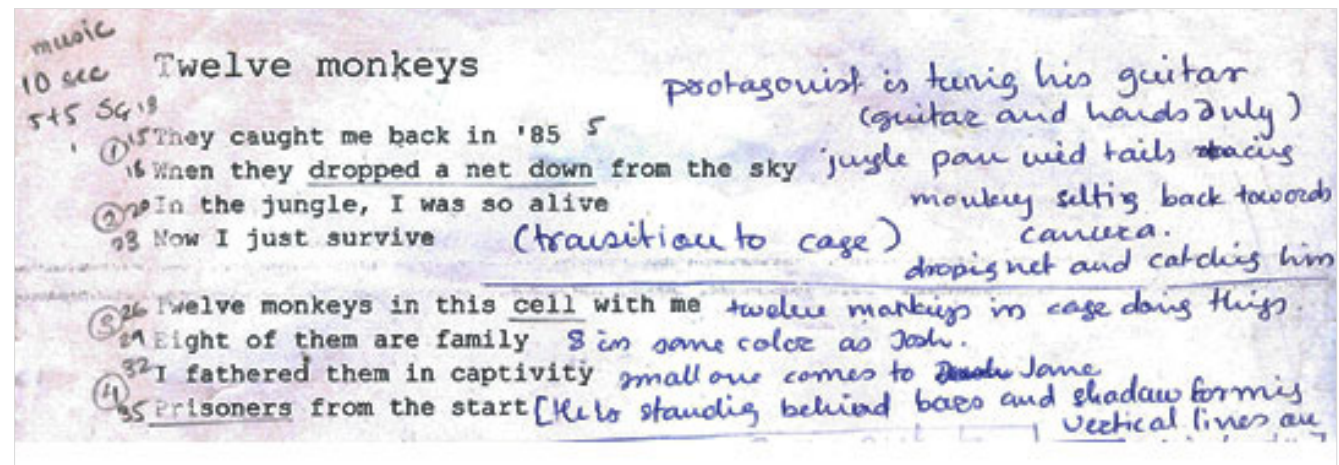 music
10 sec
5+5 SG 13
Twelve monkeys
protagonist is tunig his guitar
(guitar and hands only)
① 15 They caught me back in '85 5
18 When they dropped a net down from the sky jugle pan wid tails
monkey sitting back towords
② 20 In the jungle, I was so alive
camera.
23 Now I just survive (transition to cage)
dropig net and catchig him
③ 26 Twelve monkeys in this cell with me twelve monkeys in cage doing thigs.
29 Eight of them are family 8 in same color as Josh.
32 I fathered them in captivity small one comes to Jame
④ 35 Prisoners from the start [ standig behind bars and shadow formig
vertical lines